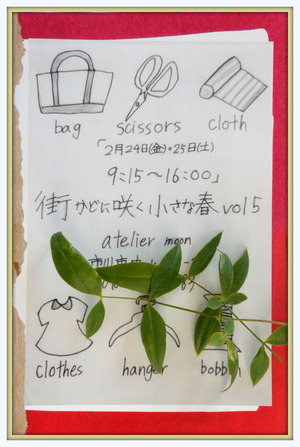 bag scissors cloth
「2月24日(金)・25日(土)
9:15～16:00」
街かどに咲く小さな春 vol5
atelier moon
clothes hanger